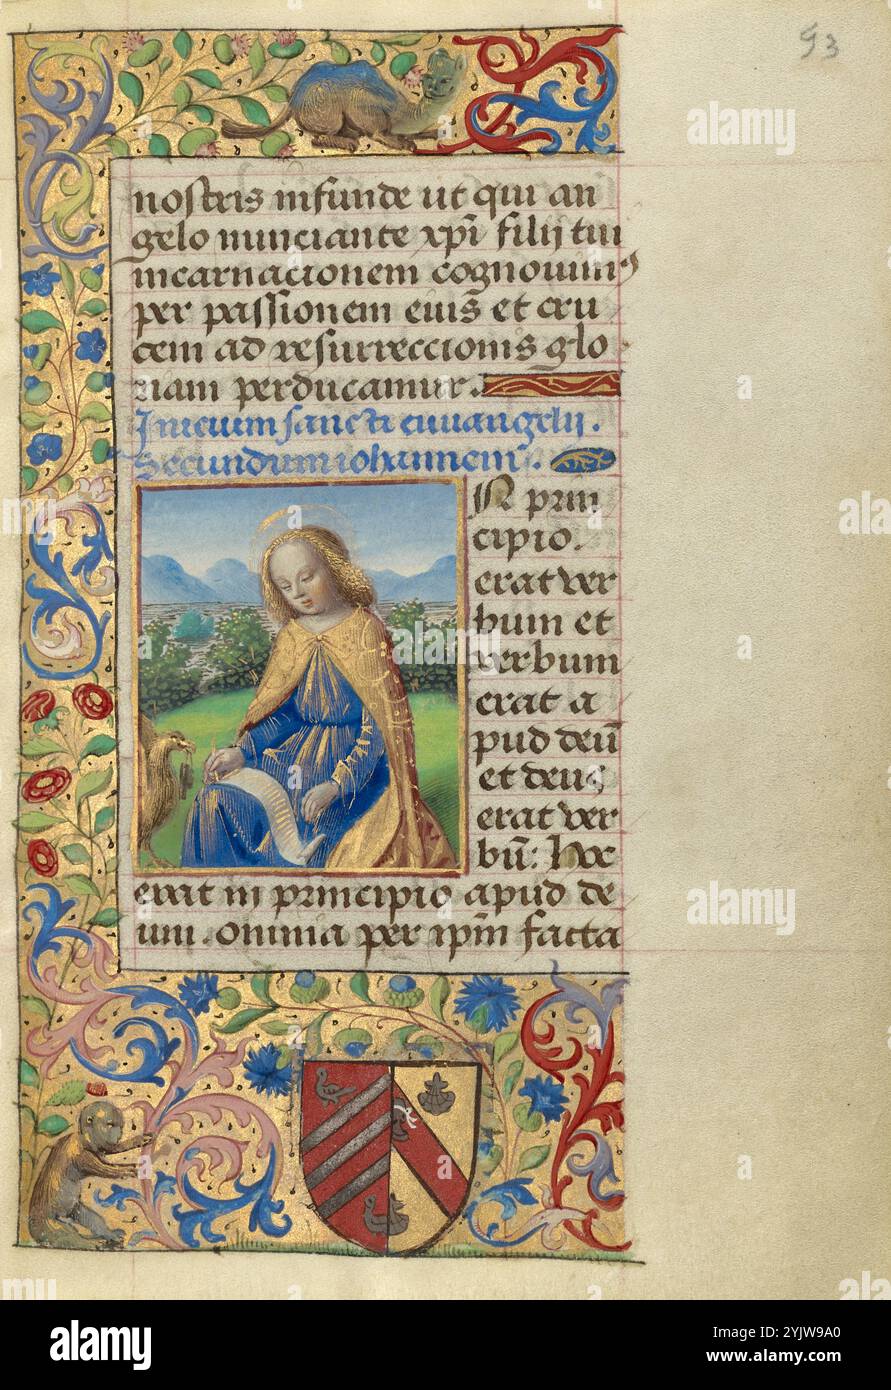 93
nostris infunde ut qui an
gelo nunciante xpi filij tui
incarnacionem cognouimus
per passionem eius et cru
cem ad resurreccionis glo
riam perducamur.
Inicium sancti euuangelij.
Secundum iohannem.
N prin
cipio.
erat ver
bum et
verbum
erat a
pud deū
et deus
erat ver
bū: Hoc
erat in principio apud de
um. omnia per ipm facta
alamy
Image ID: 2YJW9A0
www.alamy.com